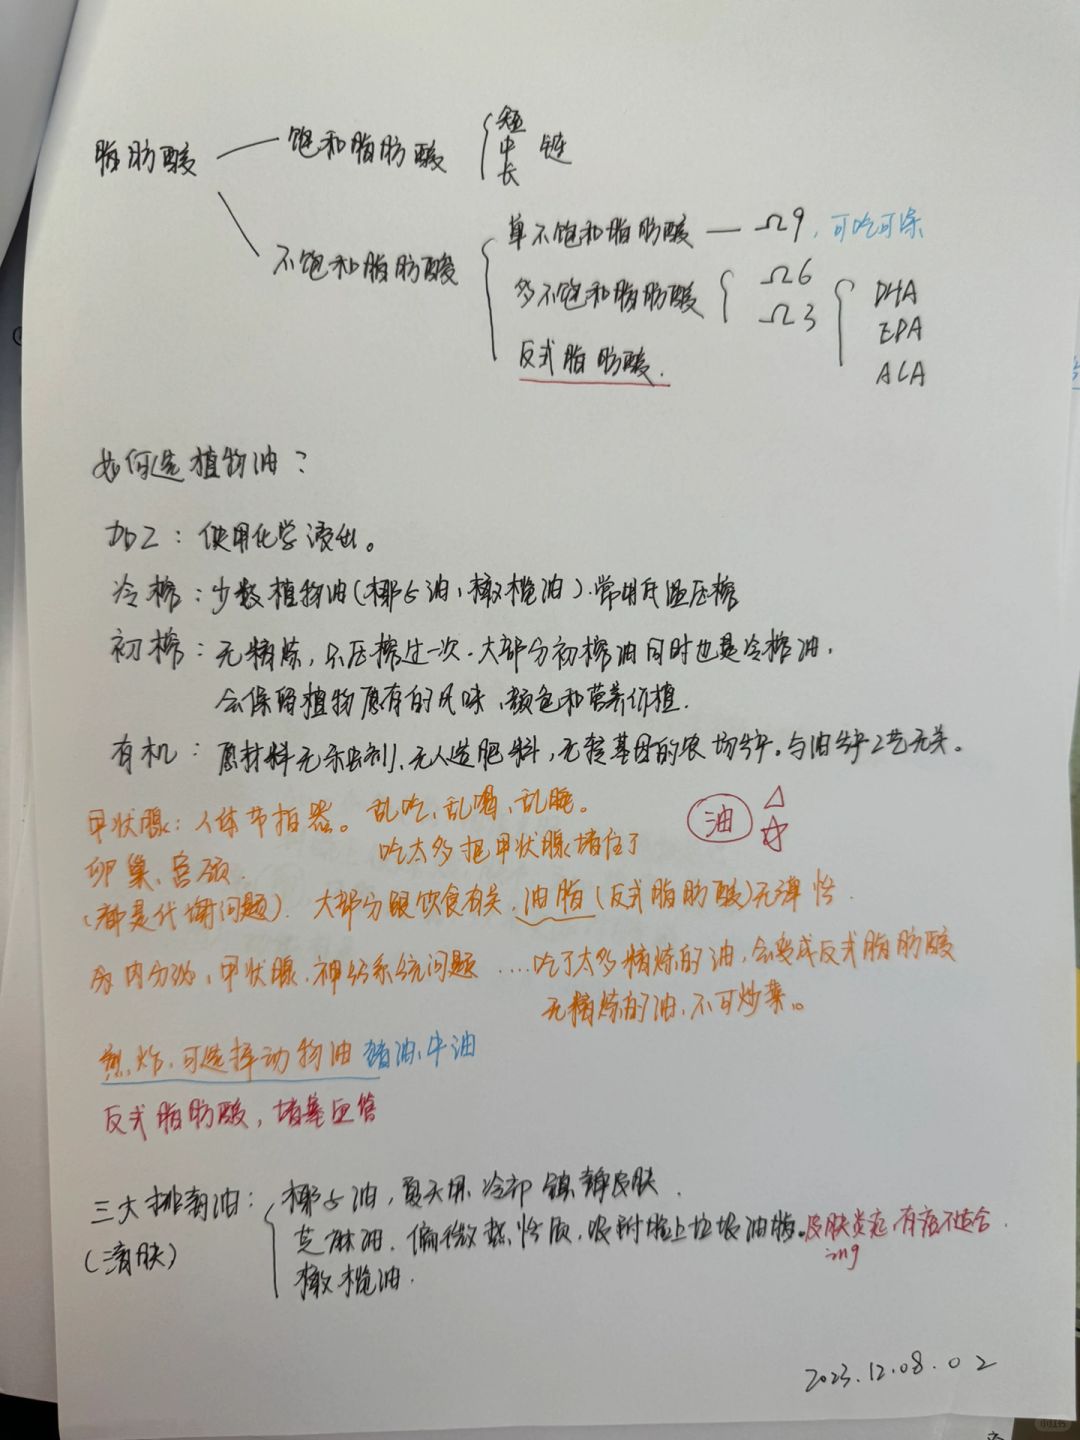 脂肪酸 饱和脂肪酸 短
中 链
长
单不饱和脂肪酸 — Ω9, 可吃可涂
不饱和脂肪酸 多不饱和脂肪酸 Ω6 DHA
Ω3 EPA
反式脂肪酸. ALA
如何选植物油?
加工: 使用化学浸出。
冷榨: 少数植物油(椰子油、橄榄油).常用低温压榨
初榨: 无精炼, 只压榨过一次.大部分初榨油同时也是冷榨油,
会保留植物原有的风味、颜色和营养价值.
有机: 原材料无杀虫剂、无人造肥料, 无转基因的农场生产。与油生产工艺无关。
甲状腺: 人体节拍器。 乱吃、乱喝、乱睡。 油
吃太多把甲状腺堵住了
卵巢、宫颈.
(都是代谢问题). 大部分跟饮食有关.油脂(反式脂肪酸)无弹性.
内分泌、甲状腺.神经系统问题 ....吃了太多精炼的油,会变成反式脂肪酸
无精炼的油.不可炒菜。
煎、炸,可选择动物油 猪油、牛油
反式脂肪酸, 堵塞血管
三大排毒油: 椰子油, 夏天用.冷却 镇静皮肤.
(清肤) 芝麻油. 偏微热性质,吸附脸上垃圾油脂。皮肤炎症,有痘不适合.
橄榄油.
2023.12.08.02